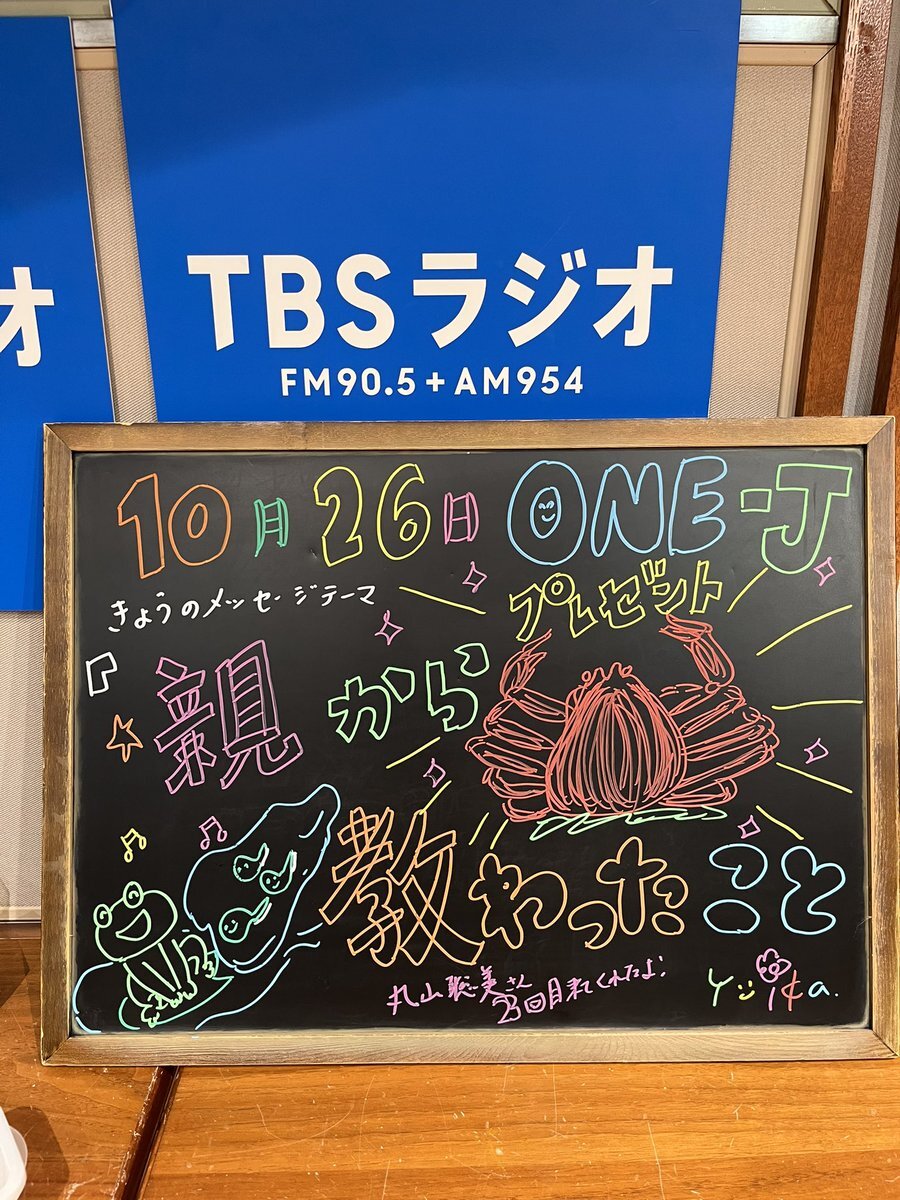 オ
TBSラジオ
FM90.5+AM954
10月26日 ONE-J
きょうのメッセージテーマ
プレゼント
「親から
教わったこと
丸山聡美さん
3回目来てくれたよ!